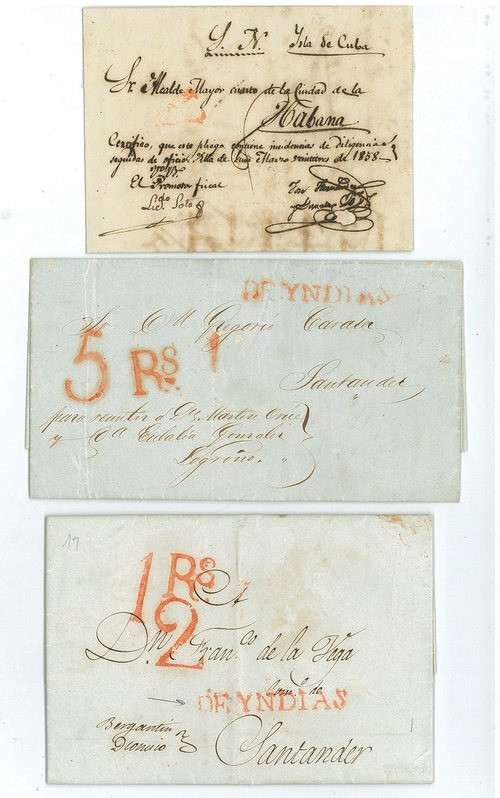 S. N. Isla de Cuba
Sr. Alcalde Mayor cuarto de la Ciudad de la
Habana
Certifico, que este pliego contiene incidencias de diligencias
seguidas de oficio. Villa de Marzo de 1858
El Promotor fiscal
Licdo. Soto
DE YNDIAS
Sr. Dn. Gregorio
5 Rs.
Santander
para remitir a Dn. Martin
y Da. Eulalia Gonzalez
Logroño.
19
1 Rs.
A
2
Dn. Franco. de la Vega
Como. de
DE YNDIAS
Bergantin
Dionisio
Santander